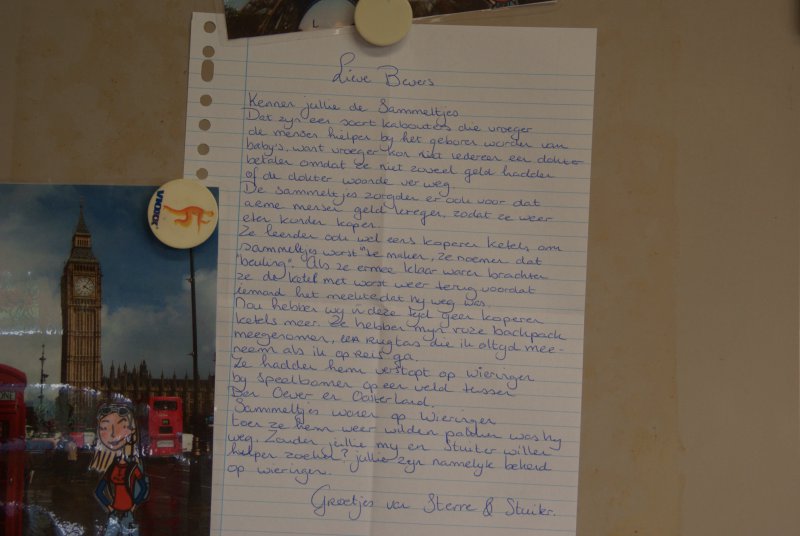 L
Lieve Bevers
Kennen jullie de Sammeltjes
Dat zijn een soort kabouters die vroeger
de mensen hielpen bij het geboren worden van
baby's, want vroeger kon niet iedereen een dokter
betalen omdat ze niet zoveel geld hadden
of de dokter woonde ver weg.
De Sammeltjes zorgden er ook voor dat
arme mensen geld kregen, zodat ze weer
eten konden kopen.
Ze leenden ook wel eens koperen ketels, om
sammeltjes worst te maken, ze noemen dat
"beuling". Als ze ermee klaar waren brachten
ze de ketel met worst weer terug voordat
iemand het merkte dat hij weg was.
Nou hebben wij in deze tijd geen koperen
ketels meer. Ze hebben mijn roze backpack
meegenomen, een rugtas die ik altijd mee-
neem als ik op reis ga.
Ze hadden hem verstopt op Wieringen
bij speelbomen op een veld tussen
Den Oever en Oosterland.
Sammeltjes wonen op Wieringen
toen ze hem weer wilden pakken was hij
weg. Zouden jullie mij en Stuiter willen
helpen zoeken? jullie zijn namelijk bekend
op wieringen.
Groetjes van Sterre & Stuiter.